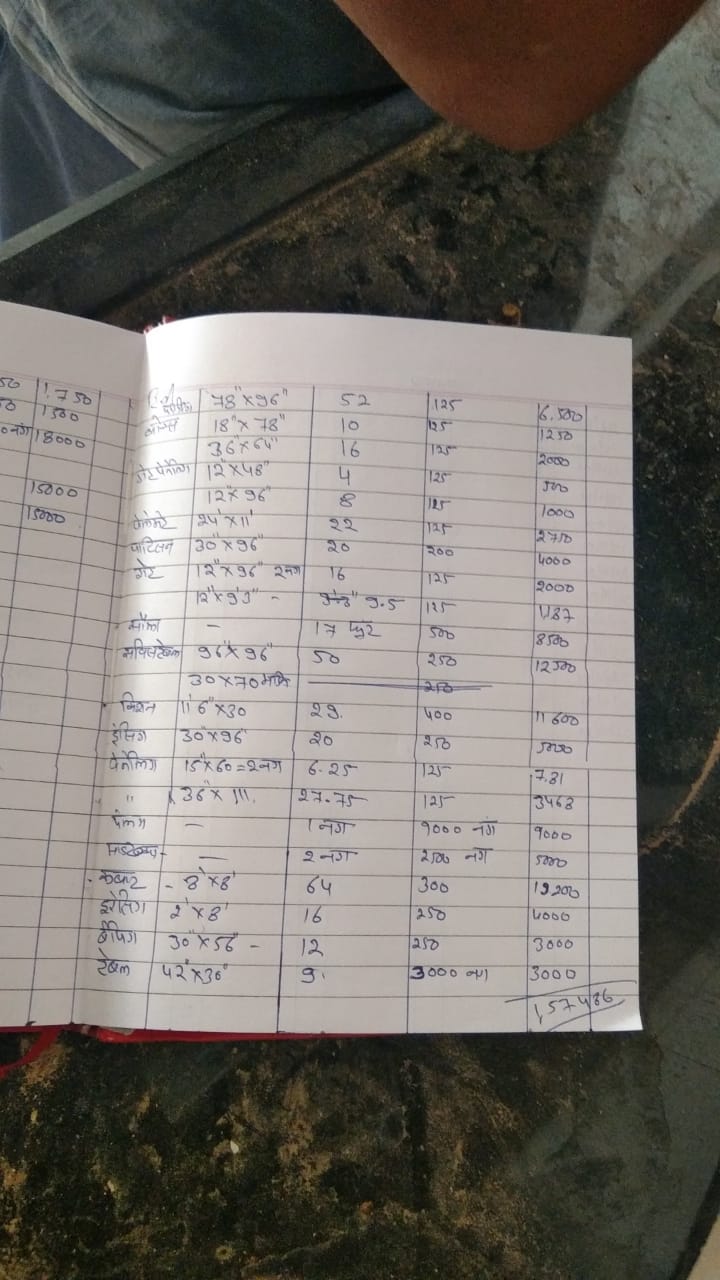 50 1,750
50 1500
नग 18000
15000
15000
78"×96" 52 125 6,500
बॉक्स 18"×78" 10 125 1250
36"×64" 16 125 2000
गेट पेनेलिंग 12"×48" 4 125 500
12"×96" 8 125 1000
24'×11' 22 125 2750
पार्टिशन 30"×96" 20 200 4000
गेट 12"×96" 2नग 16 125 2000
12"×9'3" - 9.5 125 1187
- 17 फुट 500 8500
96"×96" 50 250 12500
30×70 250
किचन 11'6"×30 29. 400 11600
30"×96" 20 250 5000
पेनेलिंग 15"×60=2नग 6.25 125 7.81
" 36"×111. 27.75 125 3468
- 1 नग 9000 नग 9000
- 2 नग 2500 नग 5000
- 8'×8' 64 300 19200
2'×8' 16 250 4000
30"×56" - 12 250 3000
टेबल 42"×30" 9. 3000 नग 3000
1,57486